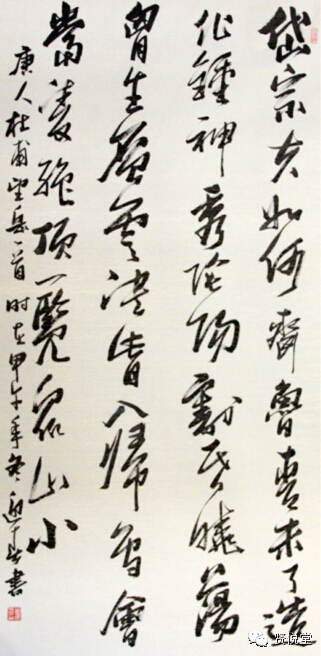 岱宗夫如何齊魯青未了造
化鍾神秀陰陽割昏曉蕩
胷生層雲決眥入歸鳥會
當凌絕頂一覽衆山小
唐人杜甫望岳一首时在甲午年冬書
贤悦堂